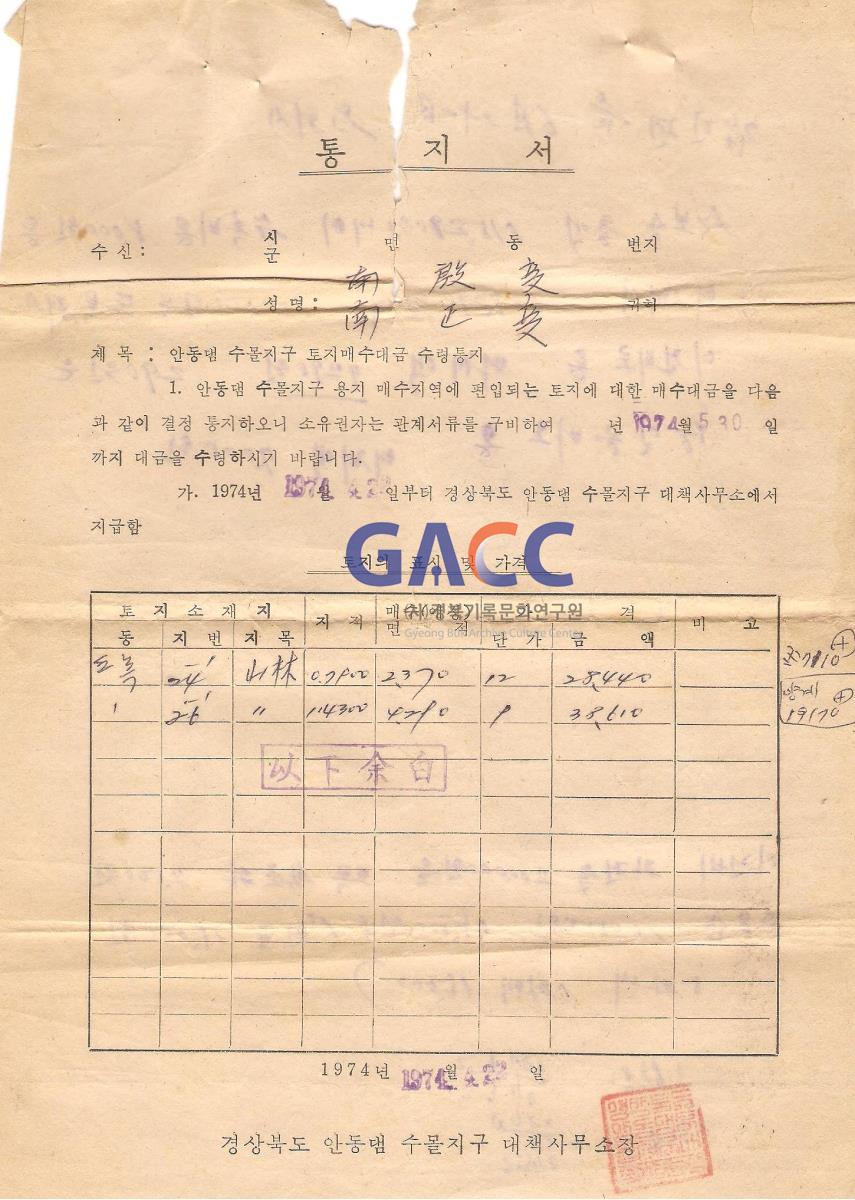 통 지 서
수 신 : 시 군 면 동 번지
南 殷 燮
성 명 : 귀하
南 正 燮
제 목 : 안동댐 수몰지구 토지매수대금 수령통지
1. 안동댐 수몰지구 용지 매수지역에 편입되는 토지에 대한 매수대금을 다음
과 같이 결정 통지하오니 소유권자는 관계서류를 구비하여 년 1974월 5.30 일
까지 대금을 수령하시기 바랍니다.
가. 1974년 1974월 4.22 일부터 경상북도 안동댐 수몰지구 대책사무소에서
지급함
GACC
토지의 표시 및 가격
(사)경북기록문화연구원
Gyeong Buk Archive Culture Center
토 지 소 재 지 지 적 매수(예정) 면 적 가 격 비 고
동 지 번 지 목 단 가 금 액
도목 山林 0.7900 2,370 12 28,440
〃 1.4300 4,290 9 38,610
19170
以下余白
1974년 1974월 4.22 일
경상북도 안동댐 수몰지구 대책사무소장